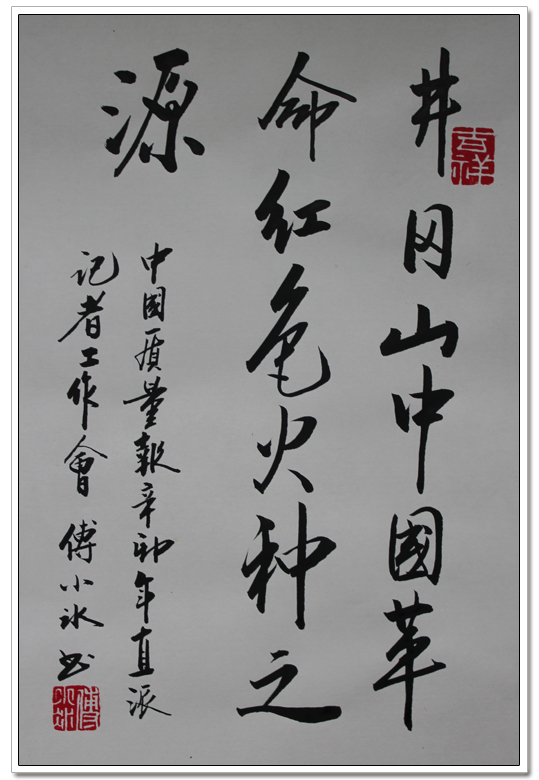 井冈山中國革
命红色火种之
源
中國质量報辛卯年直派
记者工作會 傅小冰书
吉祥
傅小冰